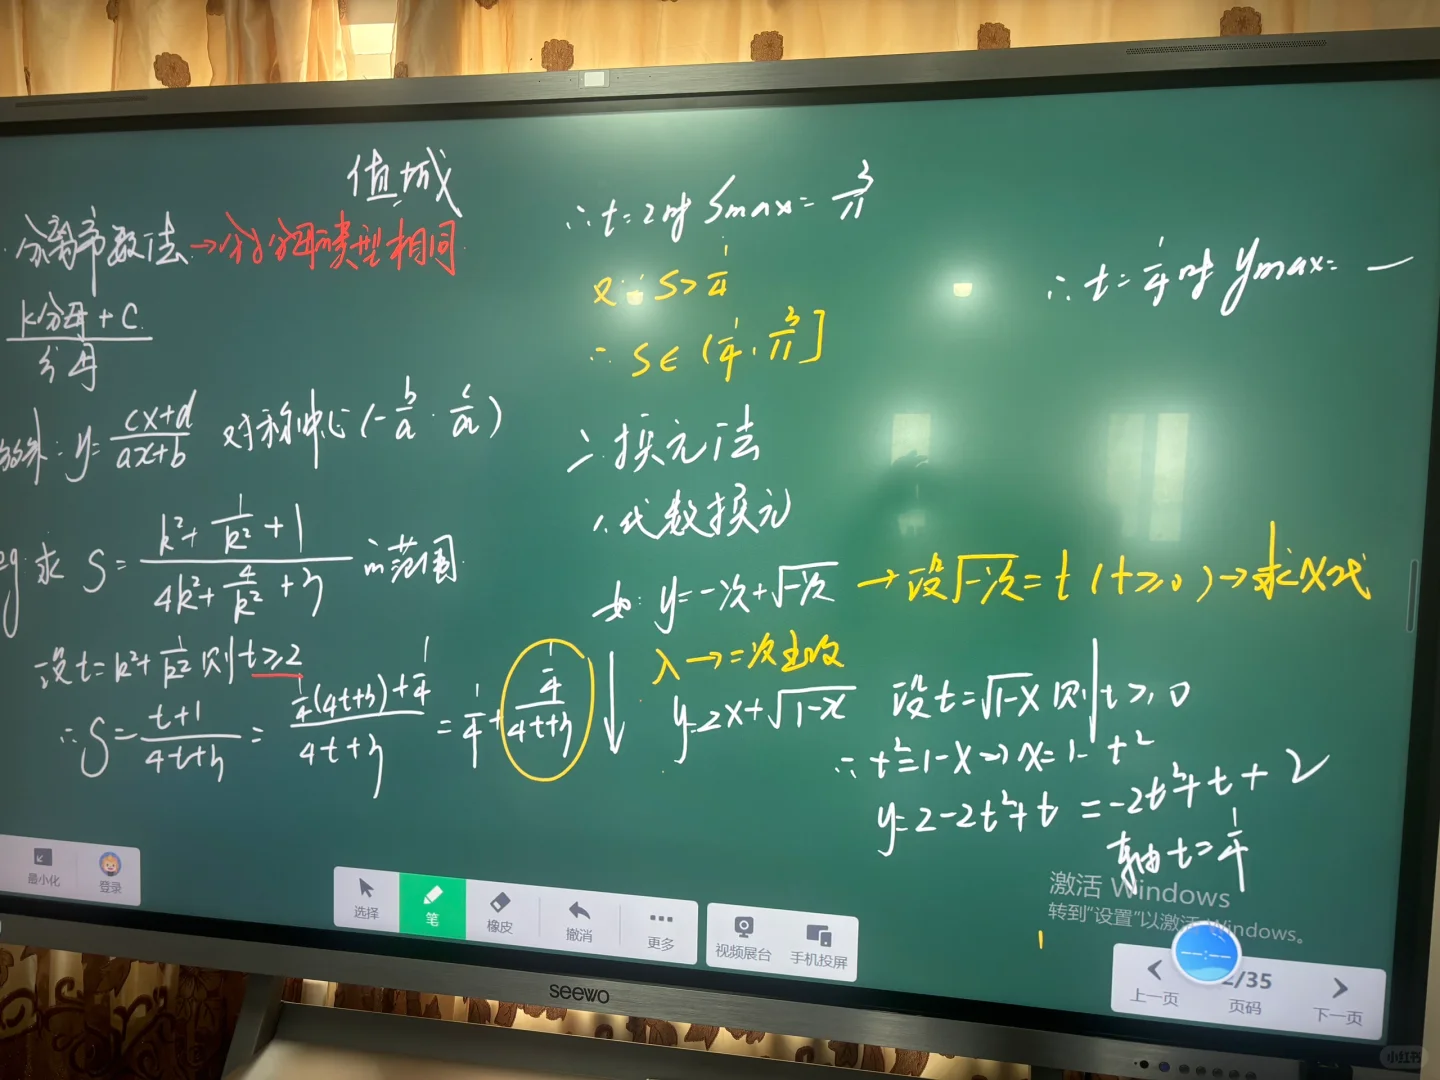 值域
分离常数法→分子分母的类型相同
k分母+C
分母
y=(cx+d)/(ax+b) 对称中心(-b/a, c/a)
eg:求 S=(k²+1/k²+1)/(4k²+4/k²+3) 的范围
设t=k²+1/k² 则t≥2
∴S=(t+1)/(4t+3)=(1/4(4t+3)+1/4)/(4t+3)=1/4+(1/4)/(4t+3) ↓
∴t=2时 Smax=3/11
又∵S>1/4
∴S∈(1/4, 3/11]
二.换元法
1.代数换元
如:y=一次+√一次 →设√一次=t(t≥0)→求x代
入→二次函数
y=2x+√1-x 设t=√1-x 则t≥0
∴t²=1-x⇒x=1-t²
y=2-2t²+t=-2t²+t+2
轴t=1/4
∴t=1/4时 ymax=—
最小化
登录
选择
笔
橡皮
撤消
更多
视频展台
手机投屏
激活 Windows
转到"设置"以激活 Windows。
上一页
2/35
页码
下一页
seewo
小红书